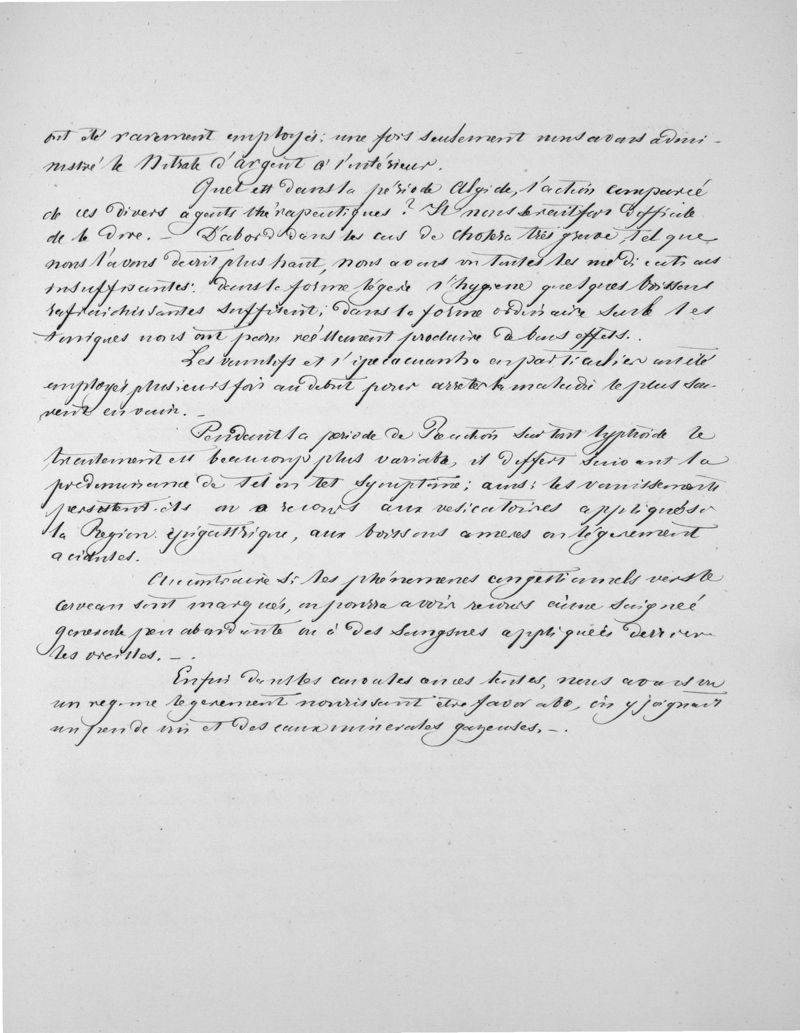 ont été rarement employés; une fois seulement nous avons admi-
nistré le Nitrate d'argent à l'intérieur.
Quel est dans la période Algide, l'action comparée
de ces divers agents thérapeutiques? Il nous serait fort difficile
de le dire. — D'abord dans les cas de choléra très grave, tel que
nous l'avons décrit plus haut, nous avons vu toutes les médications
insuffisantes: dans la forme légère l'hygiène quelques boissons
rafraichissantes suffisent; dans la forme ordinaire seuls les
toniques nous ont paru réellement produire de bons effets.
Les vomitifs et l'ipecacuanha en particulier ont été
employés plusieurs fois au début pour arrêter la maladie le plus sou-
vent en vain. —
Pendant la période de Réaction surtout typhoïde le
traitement est beaucoup plus variable, il differe suivant la
prédominance de tel ou tel symptôme; ainsi les vomissements
persistent-ils on a recours aux vesicatoires appliqués sur
la Region épigastrique, aux boissons amères ou légèrement
acidules.
Au contraire si les phénomènes congestionnels vers le
cerveau sont marqués, on pourra avoir recours à une saignée
generale peu abondante ou à des sangsues appliquées derriere
les oreilles. — .
Enfin dans les convalescences lentes, nous avons vu
un regime légèrement nourissant être favorable, en y joignant
un peu de vin et des eaux minérales gazeuses. — .